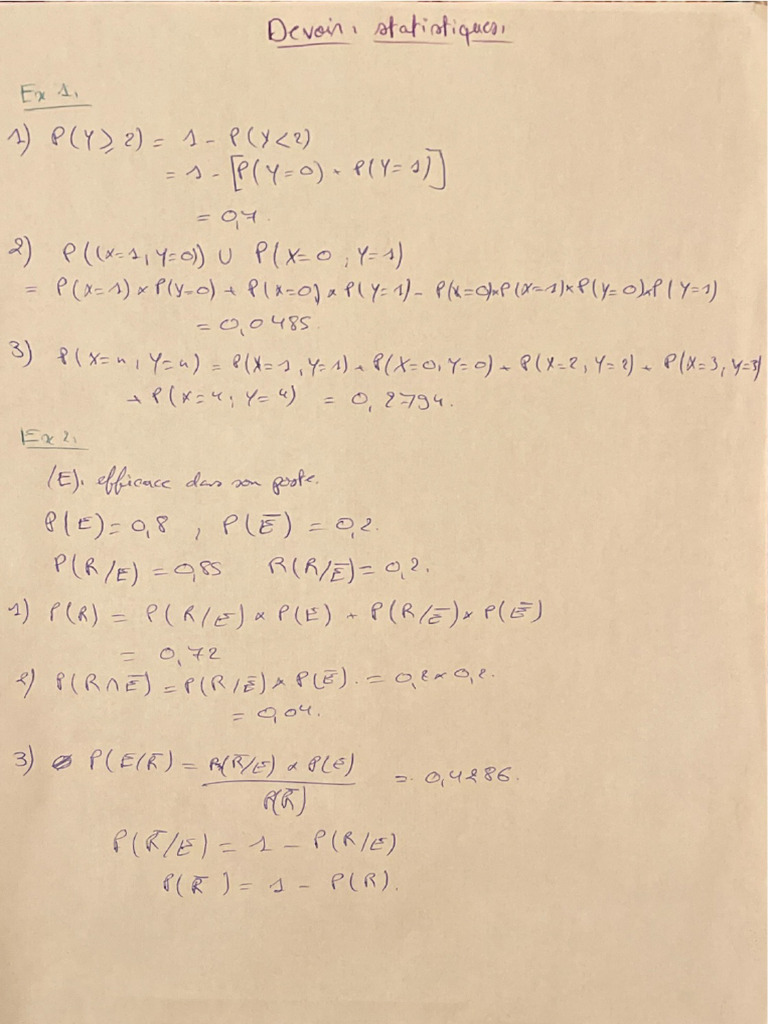 Devoir. statistiques.
Ex 1.
1) P(Y ≥ 2) = 1 - P(Y < 2)
= 1 - [P(Y=0) + P(Y=1)]
= 0,7.
2) P((X=1, Y=0)) ∪ P(X=0, Y=1)
= P(X=1) × P(Y=0) + P(X=0) × P(Y=1) - P(X=0) × P(X=1) × P(Y=0) × P(Y=1)
= 0,0485
3) P(X=4, Y=4) = P(X=1, Y=1) + P(X=0, Y=0) + P(X=2, Y=2) + P(X=3, Y=3)
+ P(X=4, Y=4) = 0,2794.
Ex 2.
(E). efficace dans son poste.
P(E) = 0,8 , P(Ē) = 0,2.
P(R/E) = 0,85 R(R/Ē) = 0,2.
1) P(R) = P(R/E) × P(E) + P(R/Ē) × P(Ē)
= 0,72
2) P(R∩Ē) = P(R/Ē) × P(Ē). = 0,2 × 0,2.
= 0,04.
3) P(E/R̄) = P(R̄/E) × P(E) / P(R̄) = 0,4286.
P(R̄/E) = 1 - P(R/E)
P(R̄) = 1 - P(R).